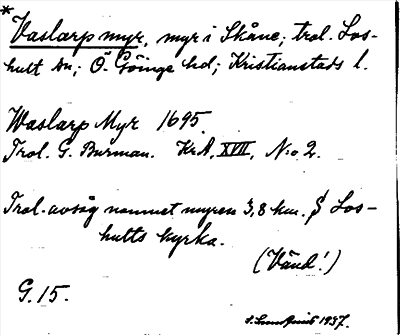 * Vaslarp myr, myr i Skåne; trol. Los-
hult sn; Ö. Göinge hd; Kristianstads l.
Waslarp Myr 1695.
Trol. G. Burman. KrA, XVII, N:o 2.
Trol. avsåg namnet myren 3,8 km. S Los-
hults kyrka.
(Vänd!)
G. 15.
1937.